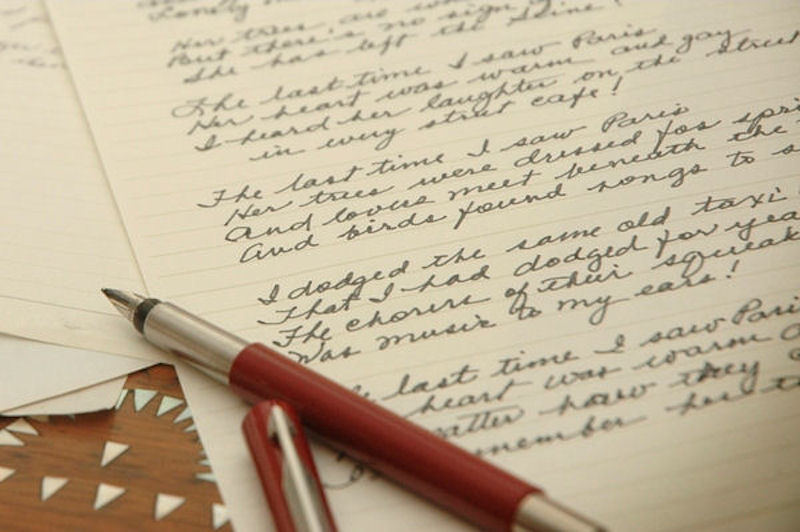 Lonely
Her trees are
But there's no sign
She has left the Seine!
The last time I saw Paris
Her heart was warm and gay
I heard her laughter on the street
in every street cafe!
The last time I saw Paris
Her trees were dressed for spri
And lovers meet beneath the
And birds found songs to s
I dodged the same old taxi
That I had dodged for yea
The chorus of their squeak
Was music to my ears!
last time I saw Pari
heart was warm
atter how they
member her